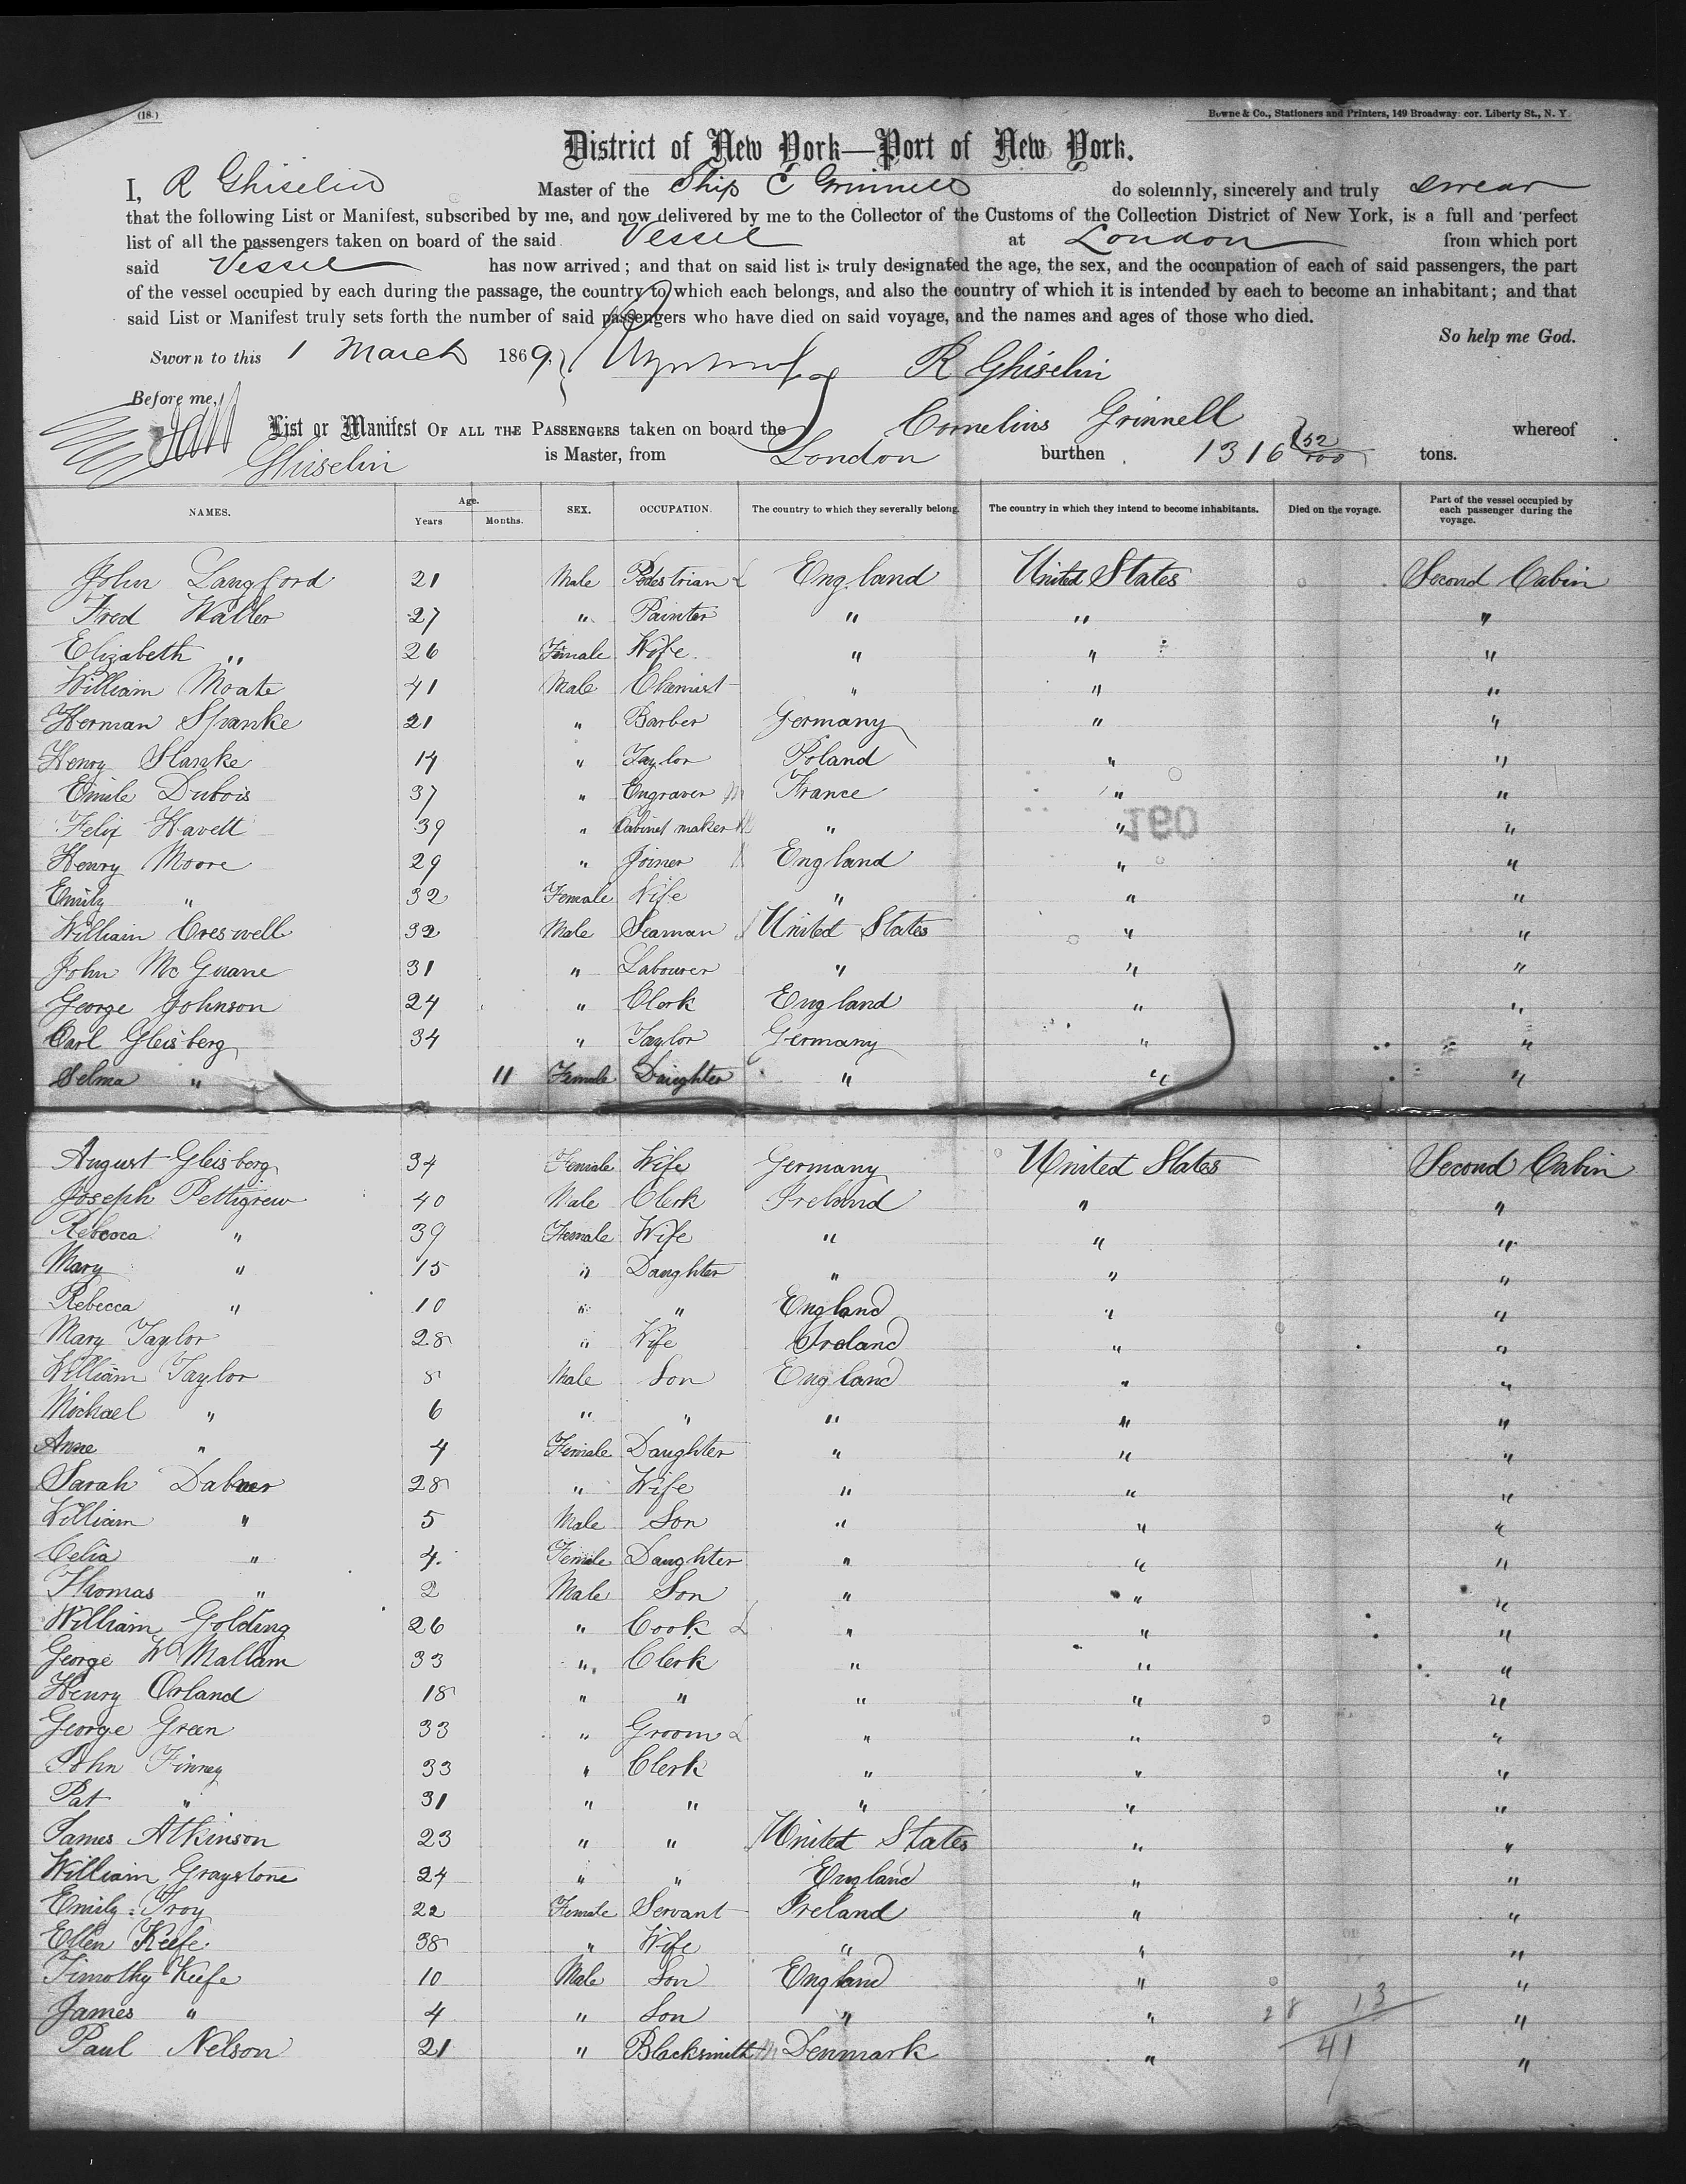 (18.)
Bowne & Co., Stationers and Printers, 149 Broadway cor. Liberty St., N. Y.
District of New York—Port of New York.
I, R Ghiselin Master of the Ship C Grinnell do solemnly, sincerely and truly swear
that the following List or Manifest, subscribed by me, and now delivered by me to the Collector of the Customs of the Collection District of New York, is a full and perfect
list of all the passengers taken on board of the said Vessel at London from which port
said Vessel has now arrived; and that on said list is truly designated the age, the sex, and the occupation of each of said passengers, the part
of the vessel occupied by each during the passage, the country to which each belongs, and also the country of which it is intended by each to become an inhabitant; and that
said List or Manifest truly sets forth the number of said passengers who have died on said voyage, and the names and ages of those who died.
So help me God.
Sworn to this 1 March 1869. R Ghiselin
Before me,
List or Manifest OF ALL THE PASSENGERS taken on board the Cornelius Grinnell whereof
Ghiselin is Master, from London burthen 1316 52/100 tons.
NAMES. Age. Years Months. SEX. OCCUPATION. The country to which they severally belong. The country in which they intend to become inhabitants. Died on the voyage. Part of the vessel occupied by each passenger during the voyage.
John Langford 21 Male Pedestrian L England United States Second Cabin
Fred Waller 27 " Painter " " "
Elizabeth " 26 Female Wife " " "
William Moate 41 Male Chemist " " "
Herman Spanke 21 " Barber Germany " "
Henry Slanke 14 " Taylor Poland " "
Emile Dubois 37 " Engraver M France " "
Felix Havett 39 " Cabinet maker " " "
Henry Moore 29 " Joiner England " "
190
Emily " 32 Female Wife " " "
William Creswell 32 Male Seaman United States " "
John McGuane 31 " Labourer " " "
George Johnson 24 " Clerk England " "
Carl Gleisberg 34 " Taylor Germany " "
Selma " 11 Female Daughter " " "
August Gleisberg 34 Female Wife Germany United States Second Cabin
Joseph Pettigrew 40 Male Clerk Ireland " "
Rebecca " 39 Female Wife " " "
Mary " 15 " Daughter " " "
Rebecca " 10 " " England " "
Mary Taylor 28 " Wife Ireland " "
William Taylor 8 Male Son England " "
Michael " 6 " " " " "
Anne " 4 Female Daughter " " "
Sarah Dabner 28 " Wife " " "
William " 5 Male Son " " "
Celia " 4 Female Daughter " " "
Thomas " 2 Male Son " " "
William Golding 26 " Cook L " " "
George W Mallam 33 " Clerk " " "
Henry Orland 18 " " " " "
George Green 33 " Groom L " " "
John Finney 33 " Clerk " " "
Pat " 31 " " " " "
James Atkinson 23 " " United States " "
William Graystone 24 " " England " "
Emily Troy 22 Female Servant Ireland " "
Ellen Keefe 38 " Wife " " "
Timothy Keefe 10 Male Son England " "
James " 4 " Son " " 28 13 "
Paul Nelson 21 " Blacksmith M Denmark " 41 "